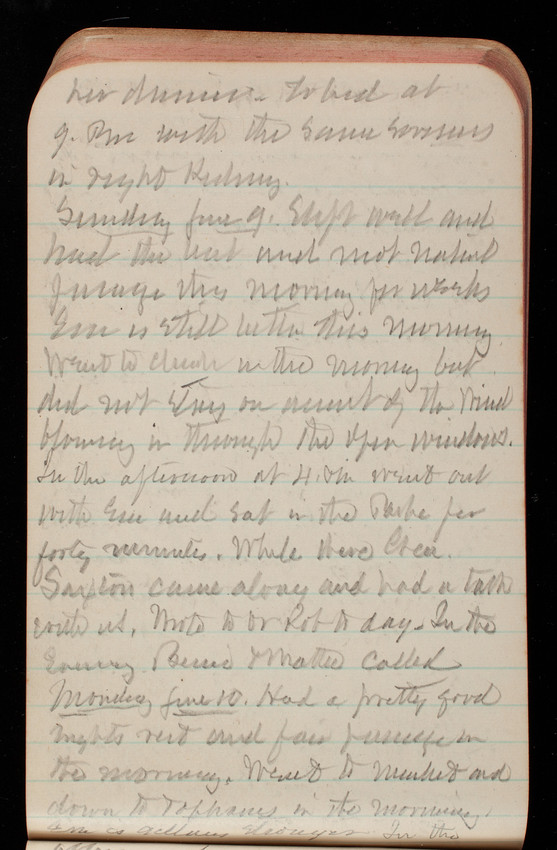 her dinner. To bed at
9. Pm with the same soreness
in right Kidney.
Sunday June 9. Slept well and
had the best and most natural
passage this morning for weeks
Em is still better this morning
Went to church in the morning but
did not stay on account of the wind
blowing in through the open windows.
In the afternoon at 4. Pm went out
with Em and sat in the Parke for
forty minutes. While there Chea.
Saxton came along and had a talk
with us. Wrote to Dr Rob to day. In the
Evening Bessie & Mattie called
Monday June 10. Had a pretty good
nights rest and fair passage in
the morning. Went to market and
down to Tophams in the morning.
Em is stronger In the